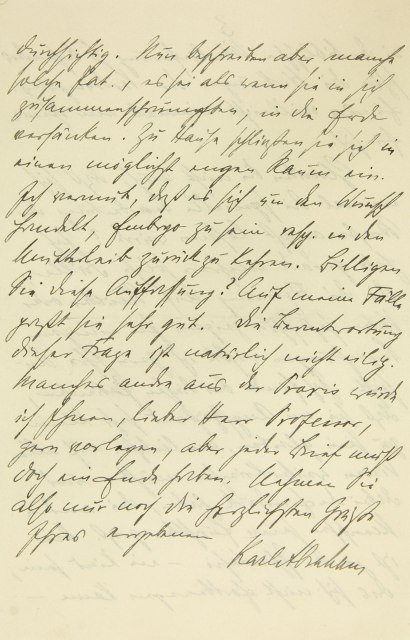 durchsichtig. Nun beschreiben aber manche
solche Pat., es sei als wenn sie in sich
zusammenschrumpften, in die Erde
versänken. Zu Hause schließen sie sich in
einen möglichst engen Raum ein.
Ich vermute, daß es sich um den Wunsch
handelt, Embryo zu sein resp. in den
Mutterleib zurückzukehren. Billigen
Sie diese Auffassung? Auf meine Fälle
paßt sie sehr gut. Die Beantwortung
dieser Frage ist natürlich nicht eilig.
Manches andre aus der Praxis würde
ich Ihnen, lieber Herr Professor,
gern vorlegen, aber jeder Brief muß
doch ein Ende haben. Nehmen Sie
also nur noch die herzlichsten Grüße
Ihres ergebenen
Karl Abraham